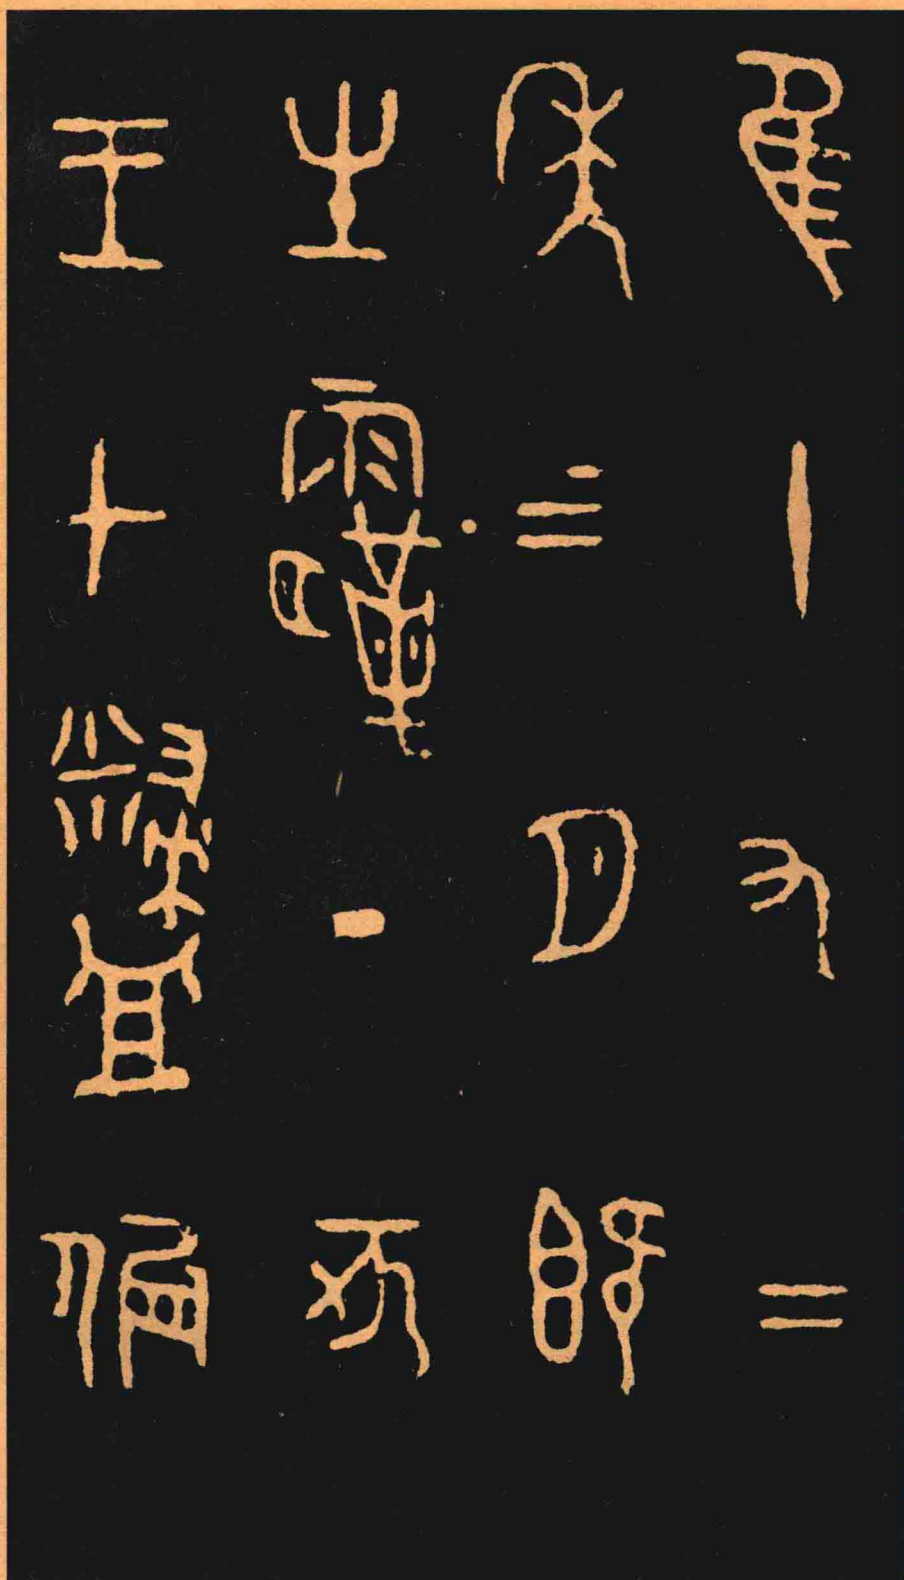 隹十又二
年三月既
生霸丁亥
王才侲